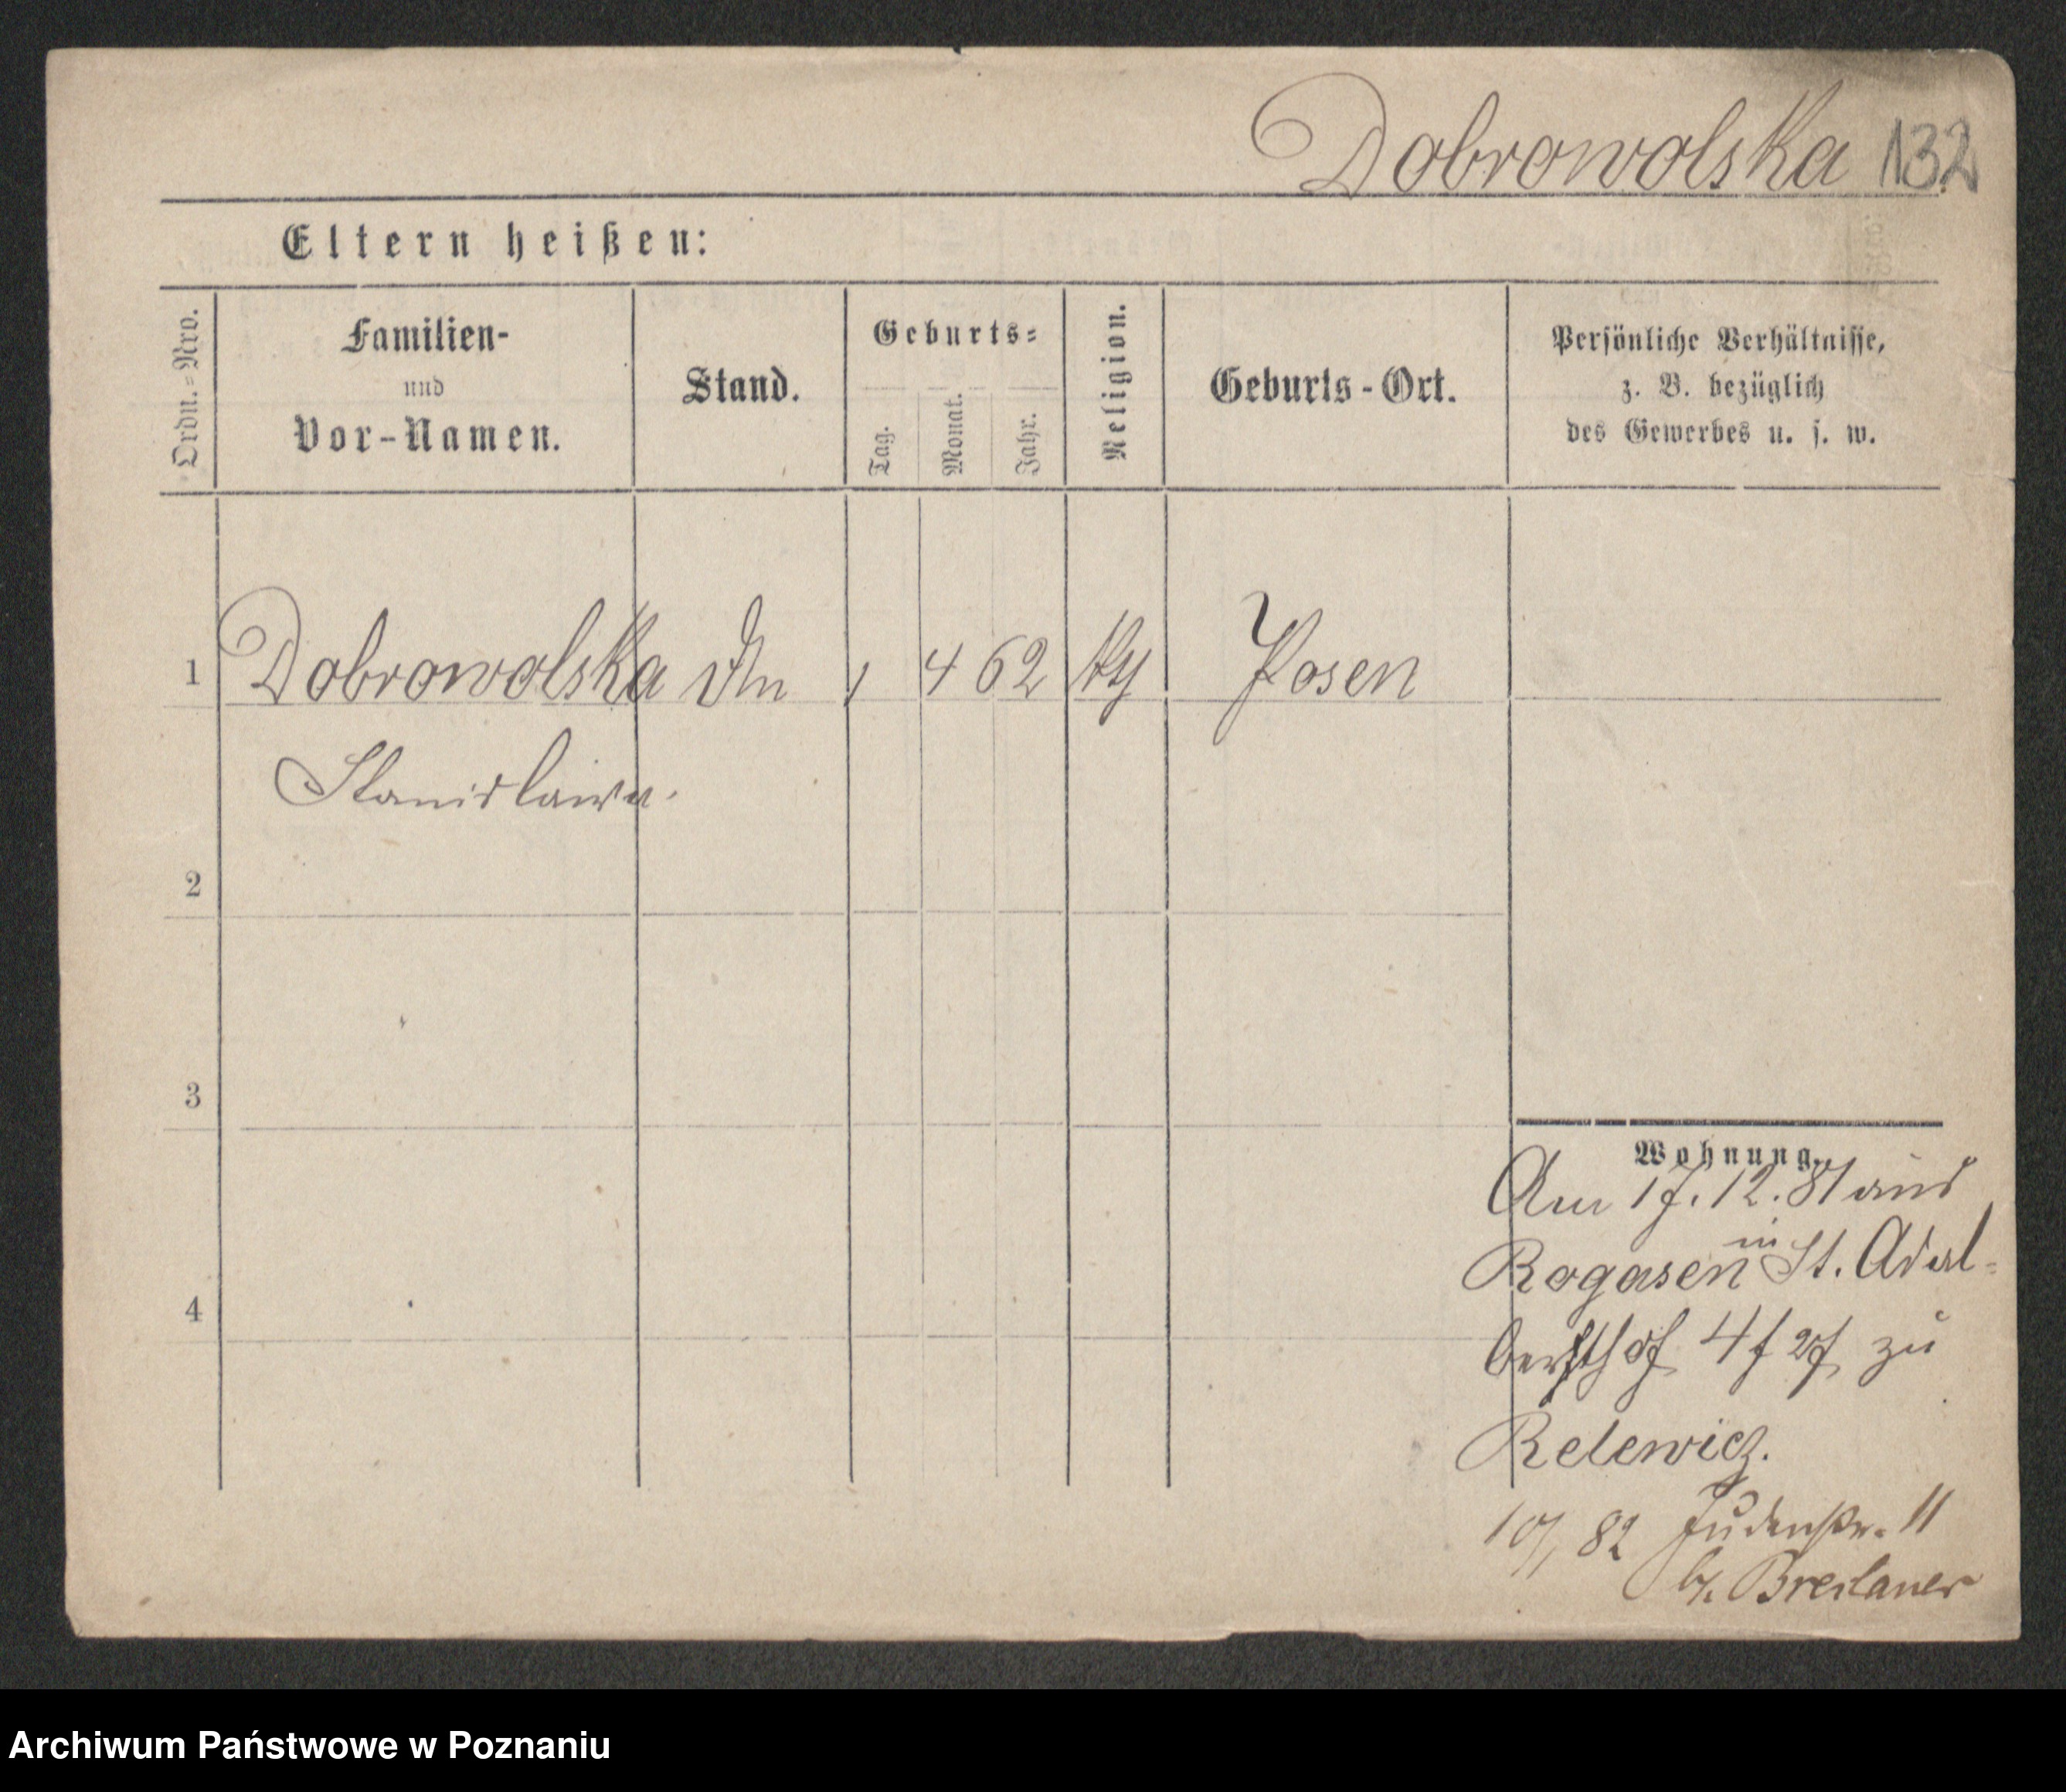 Dobrowolska 132
Eltern heißen:
Ordn.=Nro.
Familien-
und
Vor-Namen.
Stand.
Geburts=
Tag.
Monat.
Jahr.
Religion.
Geburts-Ort.
Persönliche Verhältnisse,
z. B. bezüglich
des Gewerbes u. s. w.
1 Dobrowolska 1 4 62 Posen
Stanislawa.
2
3
4
Wohnung.
Am 17. 12. 81 aus
Rogasen in St. Adal-
berthof 4 zu
Relewicz.
82 Judenstr. 11
b. Breslauer
Archiwum Państwowe w Poznaniu